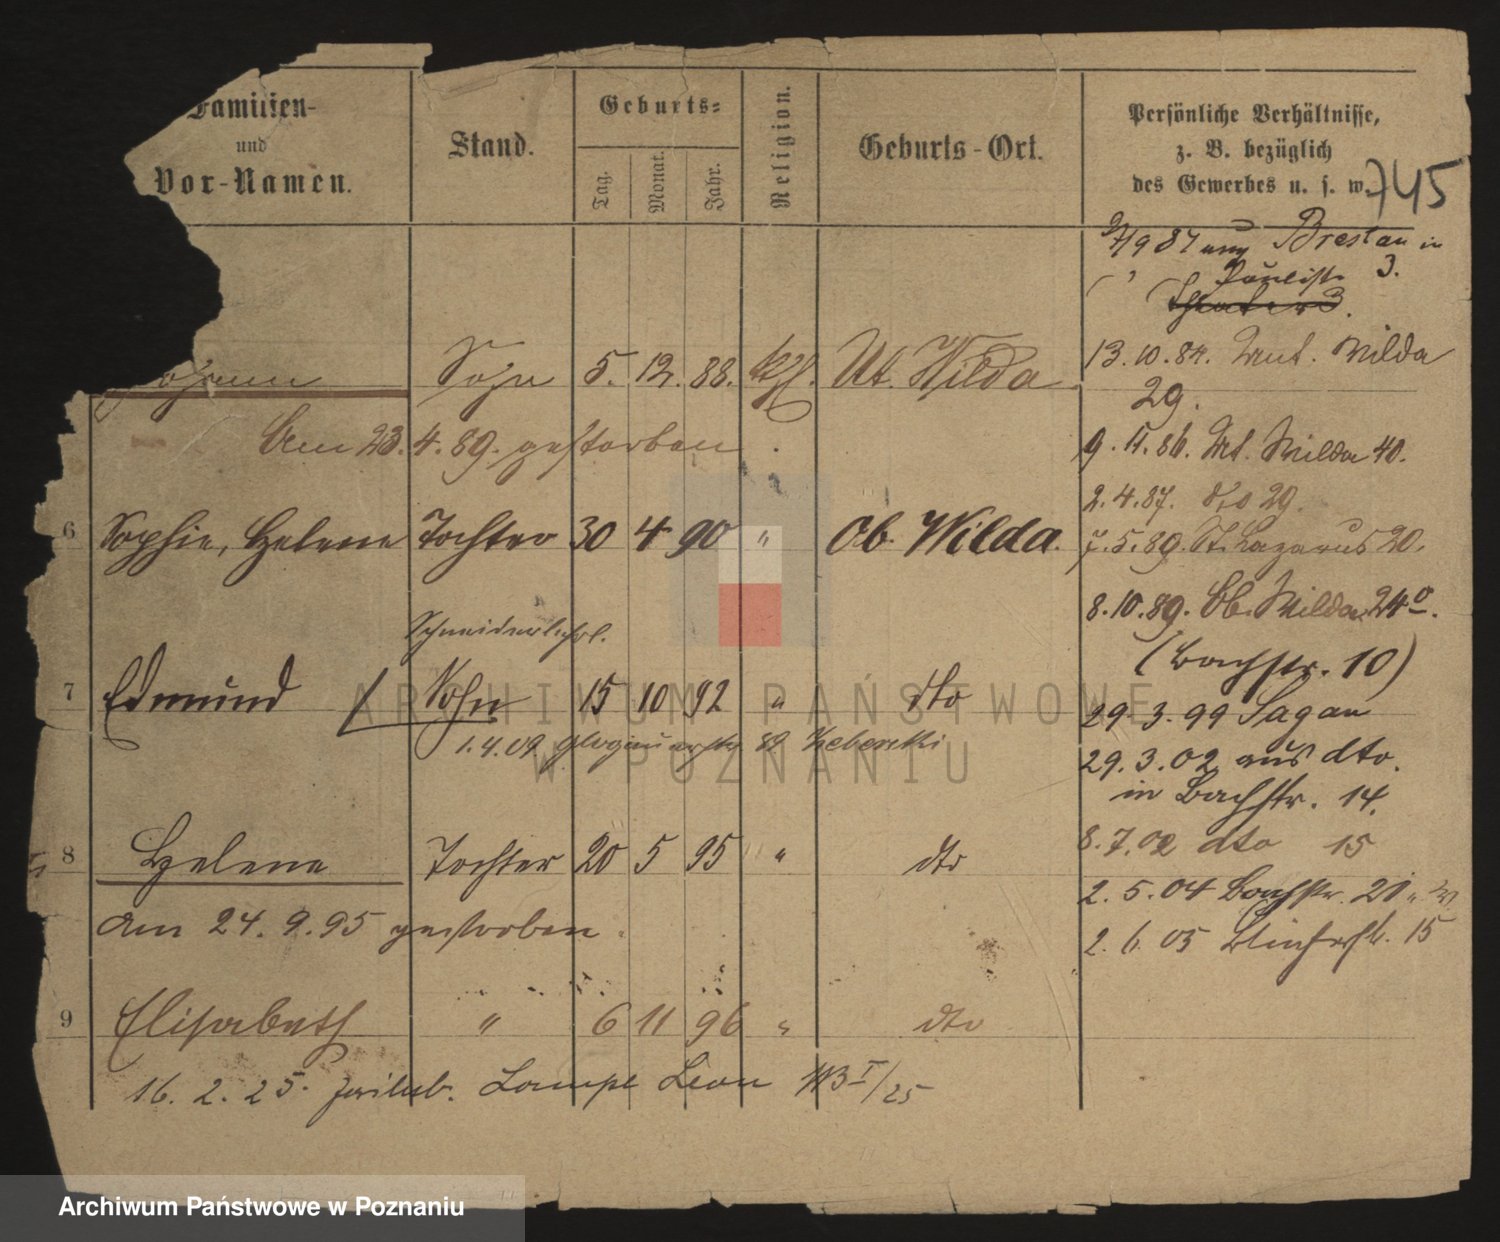 Familien-
und
Vor-Namen.
Stand.
Geburts-
Tag.
Monat.
Jahr.
Religion.
Geburts-Ort.
Persönliche Verhältnisse,
z. B. bezüglich
des Gewerbes u. s. w.
745
Breslau in
3.
Sohn 5. 12. 88. kth. Ut. Wilda
13.10.84. Unt. Wilda
29.
Am 23. 4. 89. gestorben.
9. 4. 86. Ut. Wilda 40.
2.4.87. dto 29.
6 Sophie, Helene Tochter 30 4 90 " Ob. Wilda.
7.5.89. St. Lazarus 20.
8.10.89. Ob. Wilda 24
(Bachstr. 10)
Schneiderlehrl.
7 Edmund / Sohn 15 10 92 " dto
29. 3. 99 Sagan
1.4.09
29.3.02 aus dto.
in Bachstr. 14.
8 Helene Tochter 20 5 95 " dto
8.7.02 dto 15
2. 5. 04 Bachstr. 20
Am 24. 9. 95 gestorben.
2. 6. 05 15
9 Elisabeth " 6 11 96 " dto
16. 2. 25. Lampe Leon
ARCHIWUM PAŃSTWOWE
W POZNANIU
Archiwum Państwowe w Poznaniu